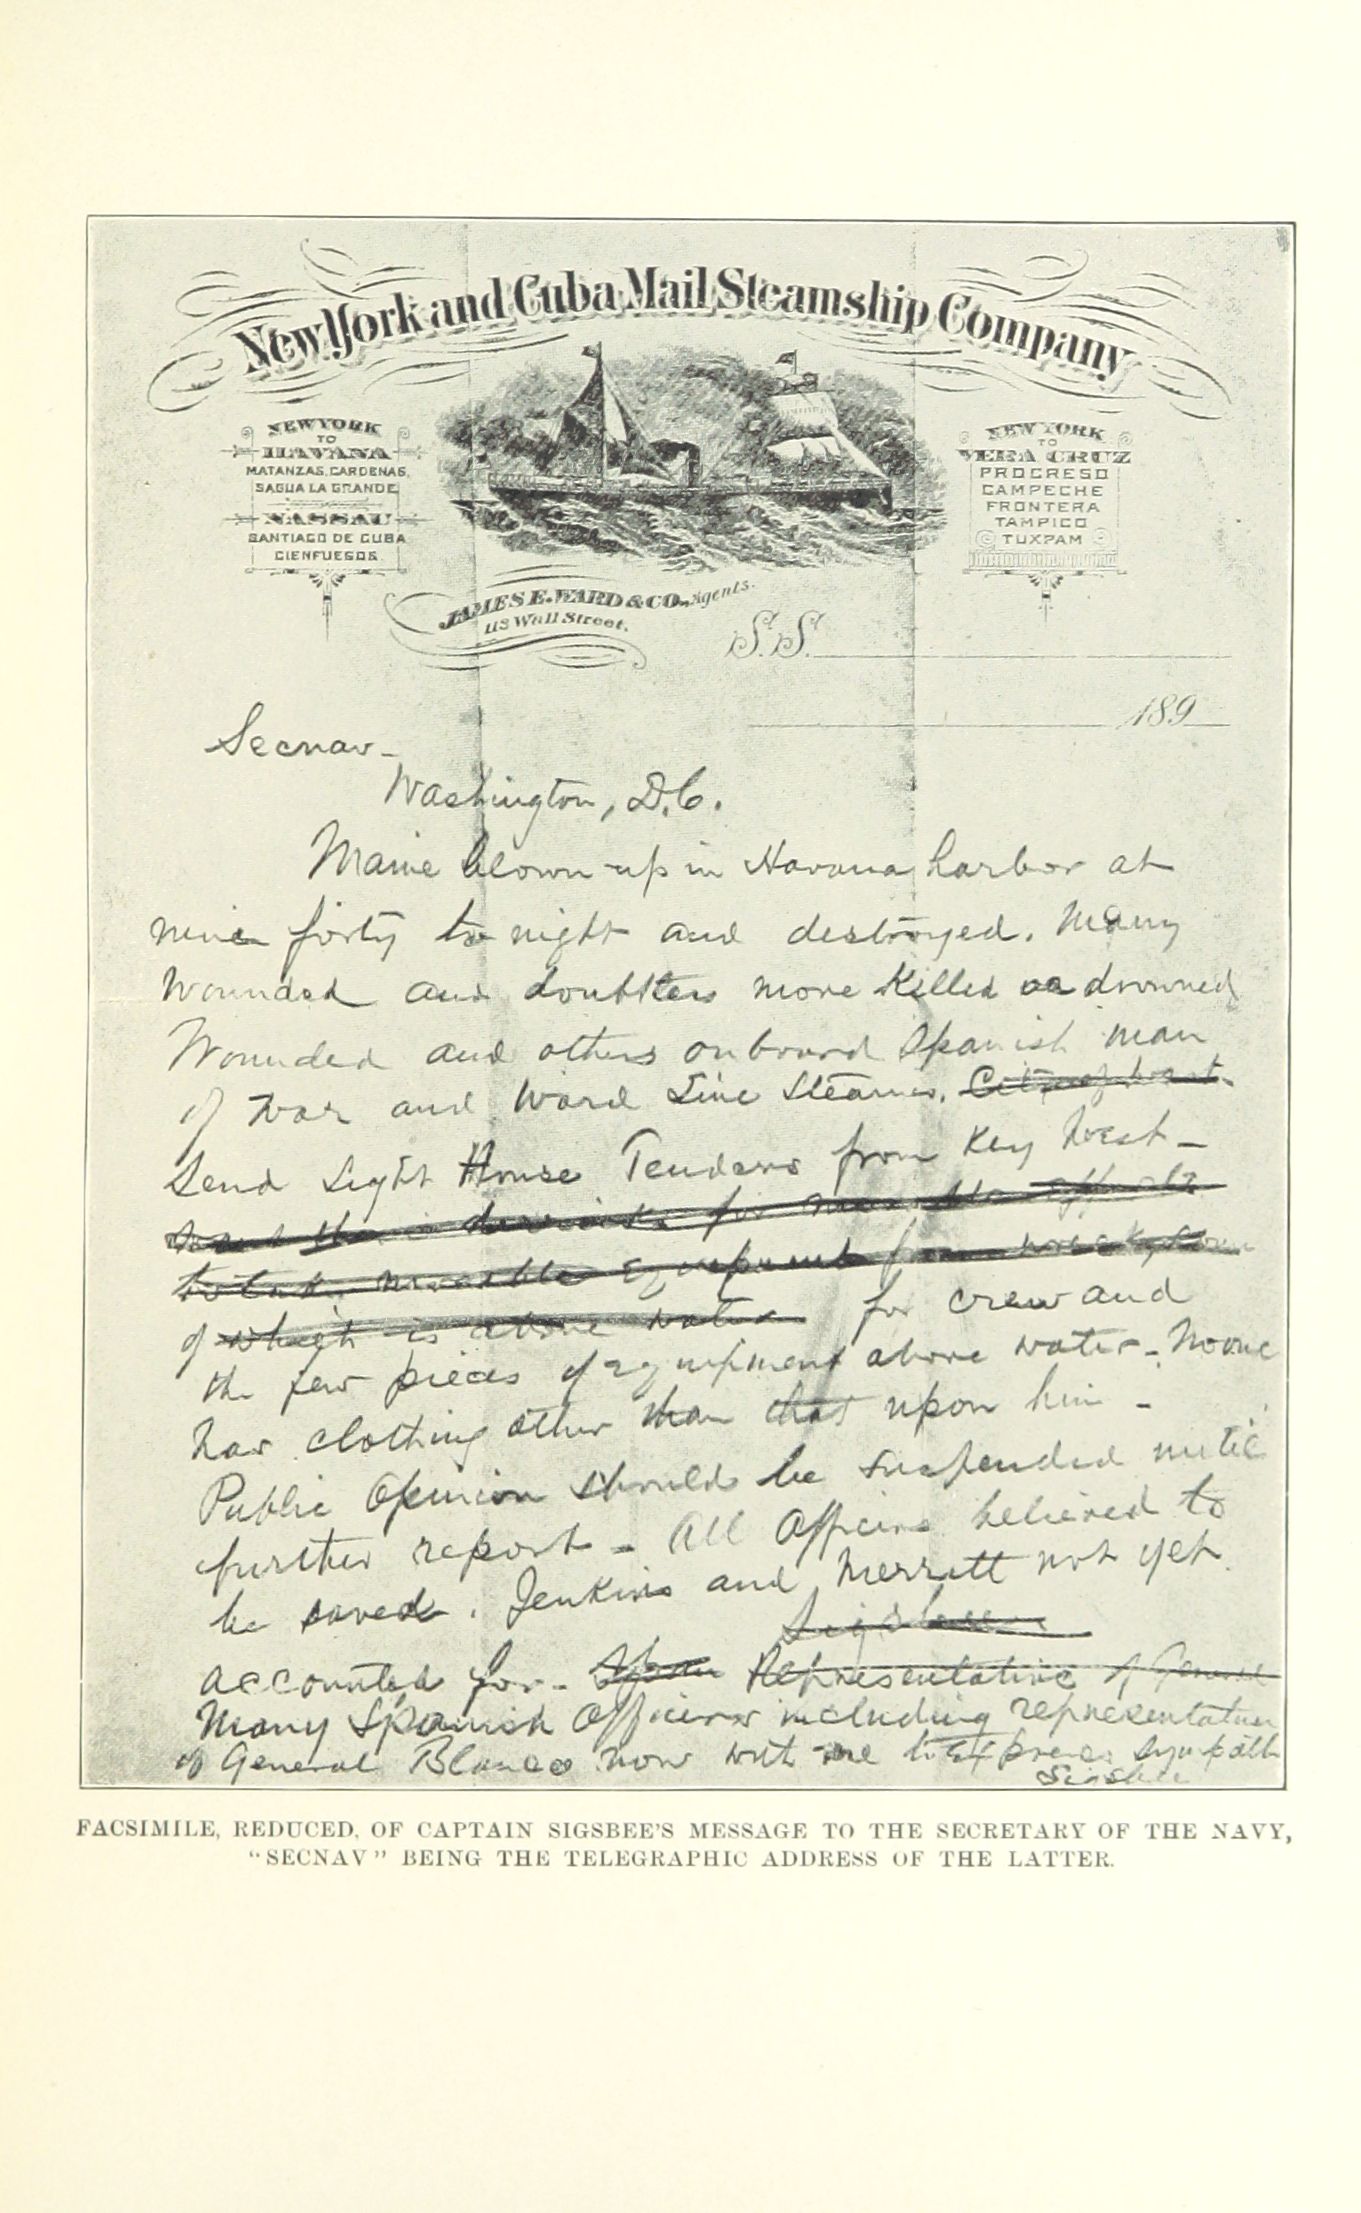 New York and Cuba Mail Steamship Company
NEW YORK
TO
HAVANA
MATANZAS, CARDENAS,
SAGUA LA GRANDE
NASSAU
SANTIAGO DE CUBA
CIENFUEGOS
NEW YORK
TO
VERA CRUZ
PROGRESO
CAMPECHE
FRONTERA
TAMPICO
TUXPAM
JAMES E. WARD & CO. Agents.
113 Wall Street.
S.S.
189
Secnav -
Washington, D.C.
Maine blown up in Havana harbor at
nine forty to night and destroyed. Many
Wounded and doubtless more killed or drowned
Wounded and others on board Spanish man
of war and Ward Line Steamer.
Send Light House Tenders from Key West -
of which is above water for crew and
the few pieces of equipment above water - No one
has clothing other than that upon him -
Public Opinion should be suspended until
further report - All Officers believed to
be saved. Jenkins and Merritt not yet
Sigsbee
accounted for - Representative of General
Many Spanish Officers including representatives
of General Blanco now with me to express sympathy
Sigsbee
FACSIMILE, REDUCED, OF CAPTAIN SIGSBEE'S MESSAGE TO THE SECRETARY OF THE NAVY,
"SECNAV" BEING THE TELEGRAPHIC ADDRESS OF THE LATTER.